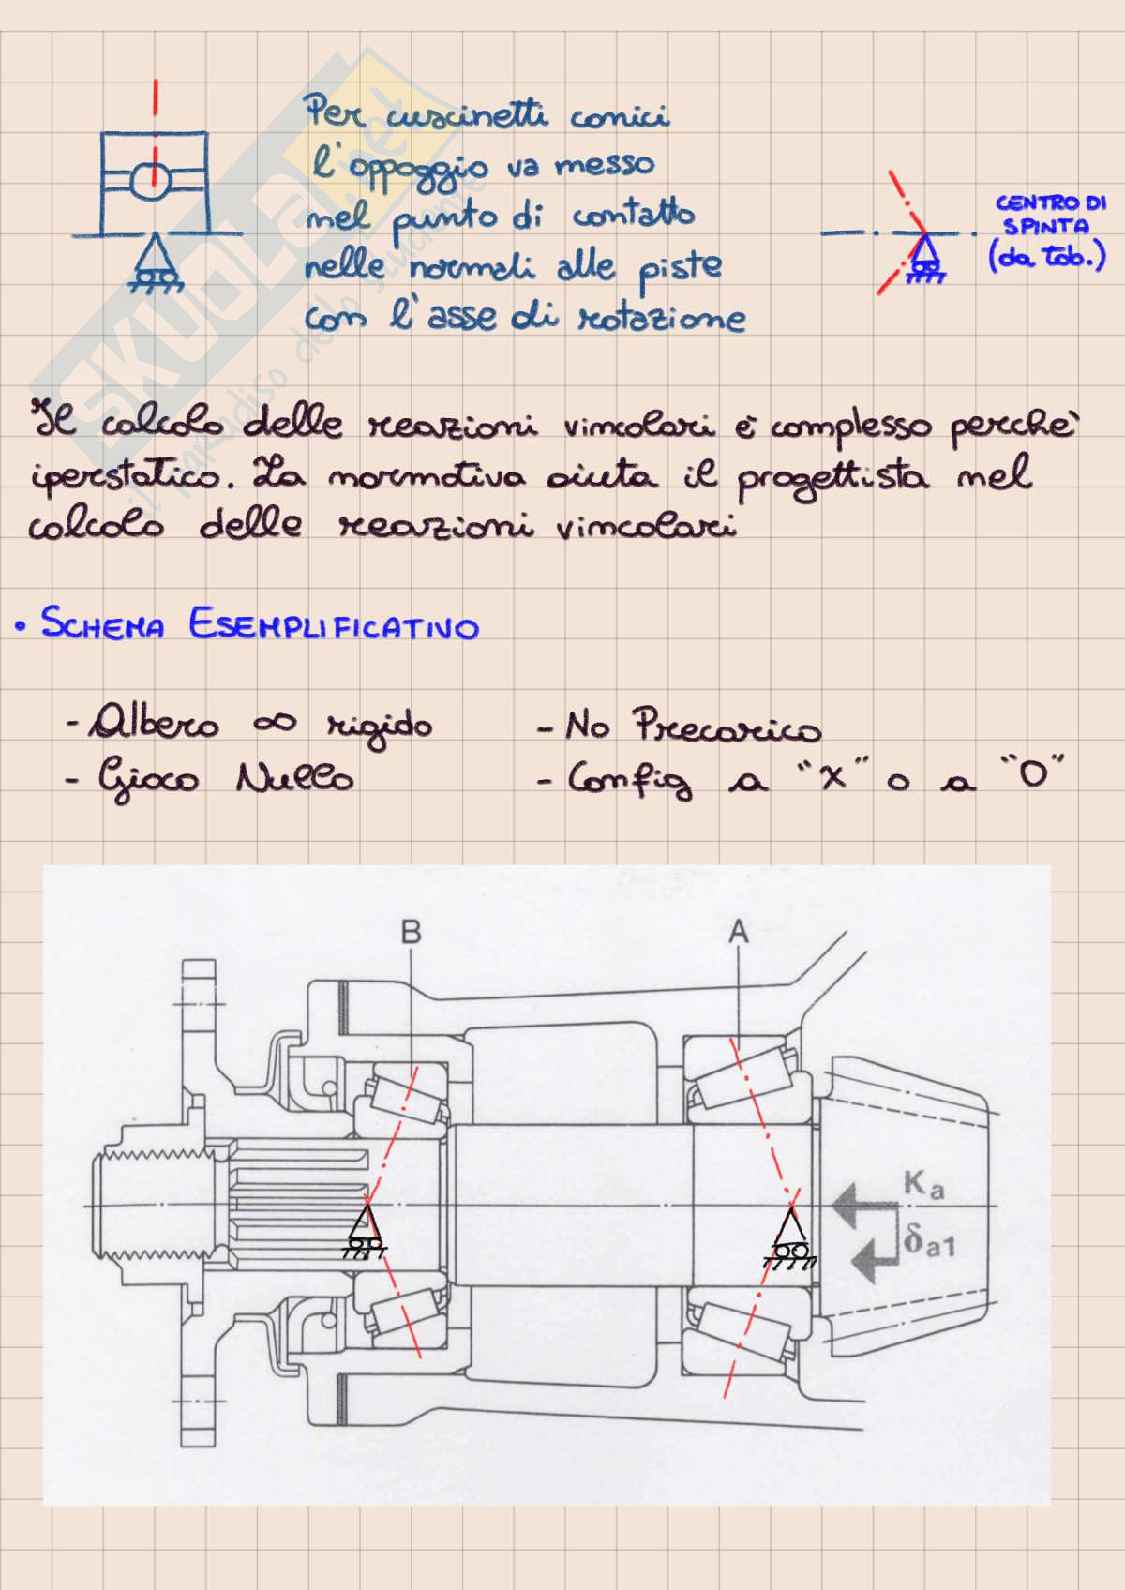 Per cuscinetti conici
l'appoggio va messo
nel punto di contatto
nelle normali alle piste
con l'asse di rotazione
CENTRO DI
SPINTA
(da tab.)
SKUOLA.net
il paradiso dello studente
Il calcolo delle reazioni vincolari è complesso perchè
iperstatico. La normativa aiuta il progettista nel
calcolo delle reazioni vincolari
• SCHEMA ESEMPLIFICATIVO
- Albero ∞ rigido - No Precarico
- Gioco Nullo - Config a "X" o a "O"
B A
Ka
δa1